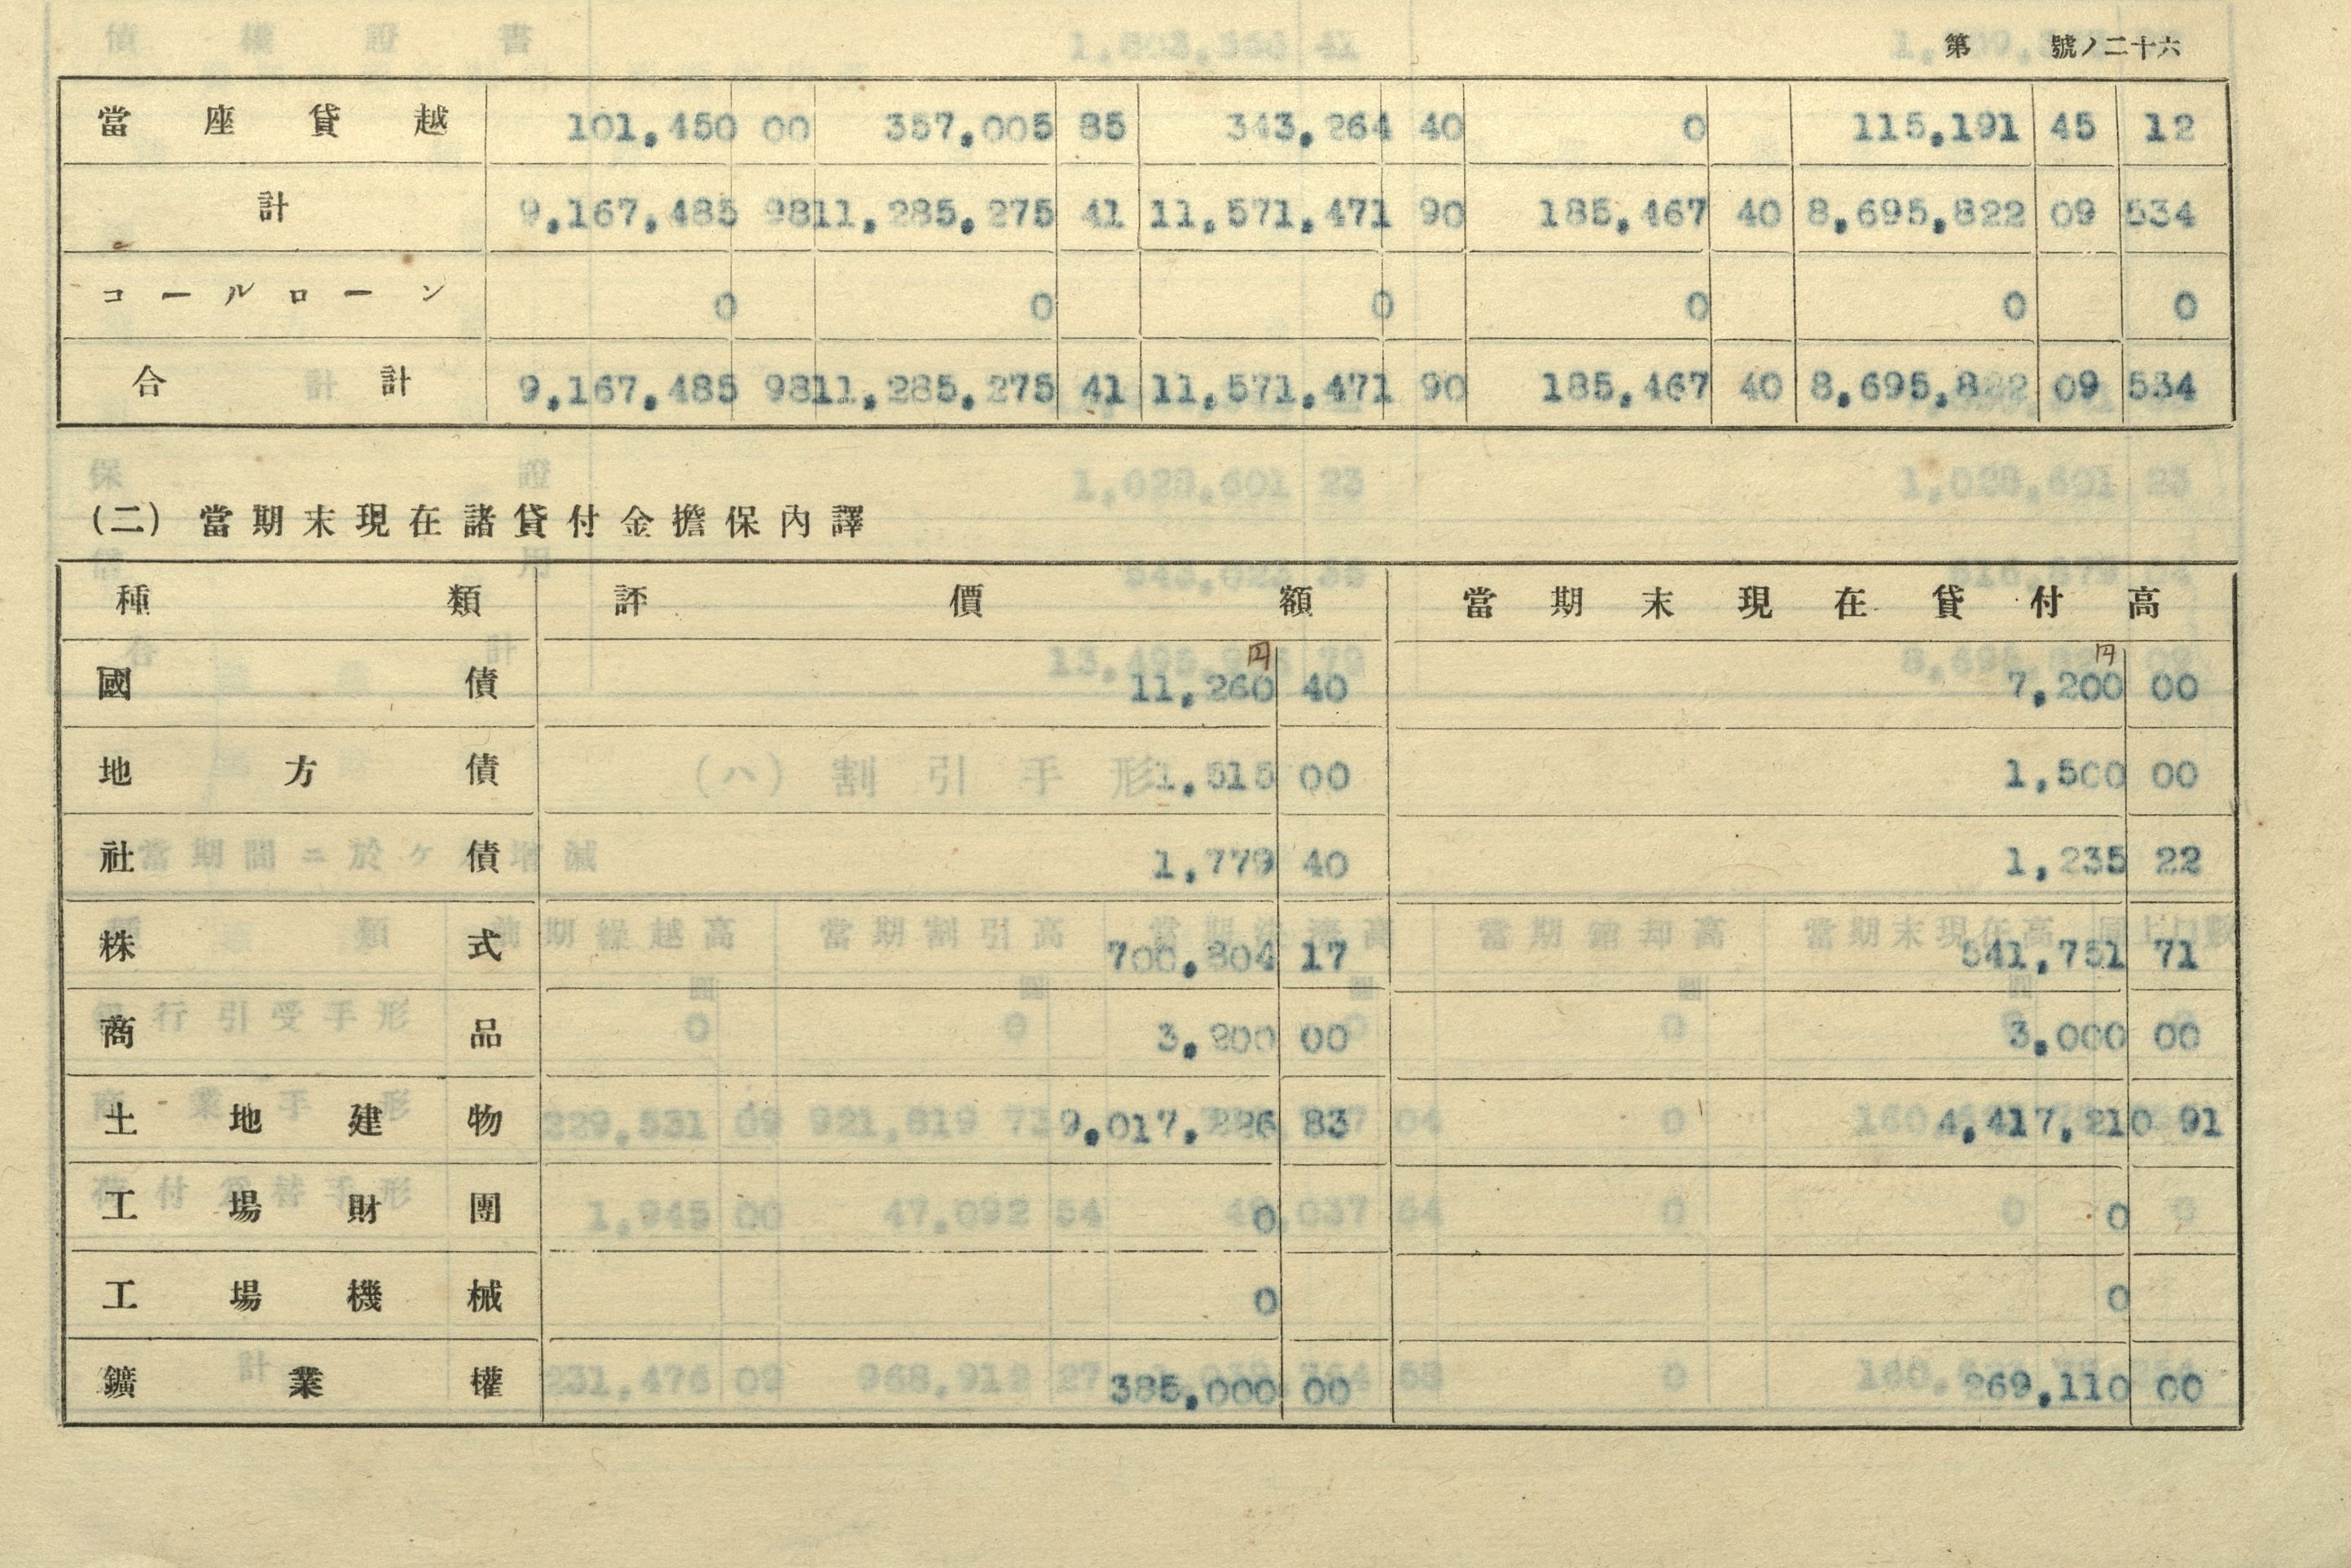 第　號ノ二十六
當座貸越 101,450 00 357,005 85 343,264 40 0 115,191 45 12
計 9,167,485 98 11,285,275 41 11,571,471 90 185,467 40 8,695,822 09 534
コールローン 0 0 0 0 0 0
合計 9,167,485 98 11,285,275 41 11,571,471 90 185,467 40 8,695,822 09 534
(二) 當期末現在諸貸付金擔保內譯
種類 評價額 當期末現在貸付高
國債 円 11,260 40 円 7,200 00
地方債 1,515 00 1,500 00
社債 1,779 40 1,235 22
株式 700,804 17 541,751 71
商品 3,200 00 3,000 00
土地建物 9,017,226 83 4,417,210 91
工場財團 0 0
工場機械 0 0
鑛業權 385,000 00 269,110 00